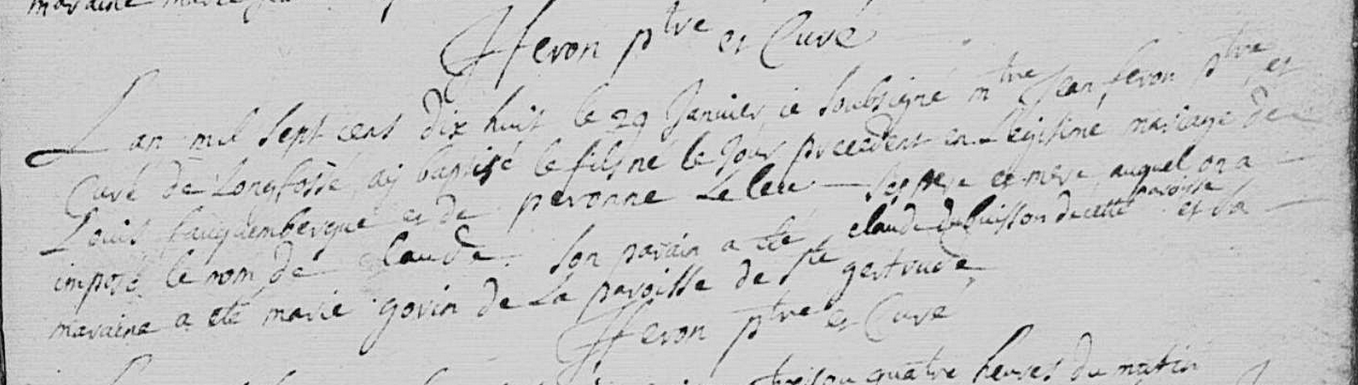 maraine marie
JHeron ptre et Curé
L an mil sept cens dix huit le 29 Janvier, ie soubsigné mtre Jean heron ptre et
Curé de Longfossé ay baptisé le fils né le Jour precedent en Legitime mariage de
Louis fauquembergue et de peronne Leleu ses pere et mere, auquel on a
imposé le nom de claude. Son parain a eté claude dubuisson de cette paroisse et sa
maraine a eté marie govin de La paroisse de ste gertrude,
JHeron ptre et Curé
trois ou quatre heures du matin